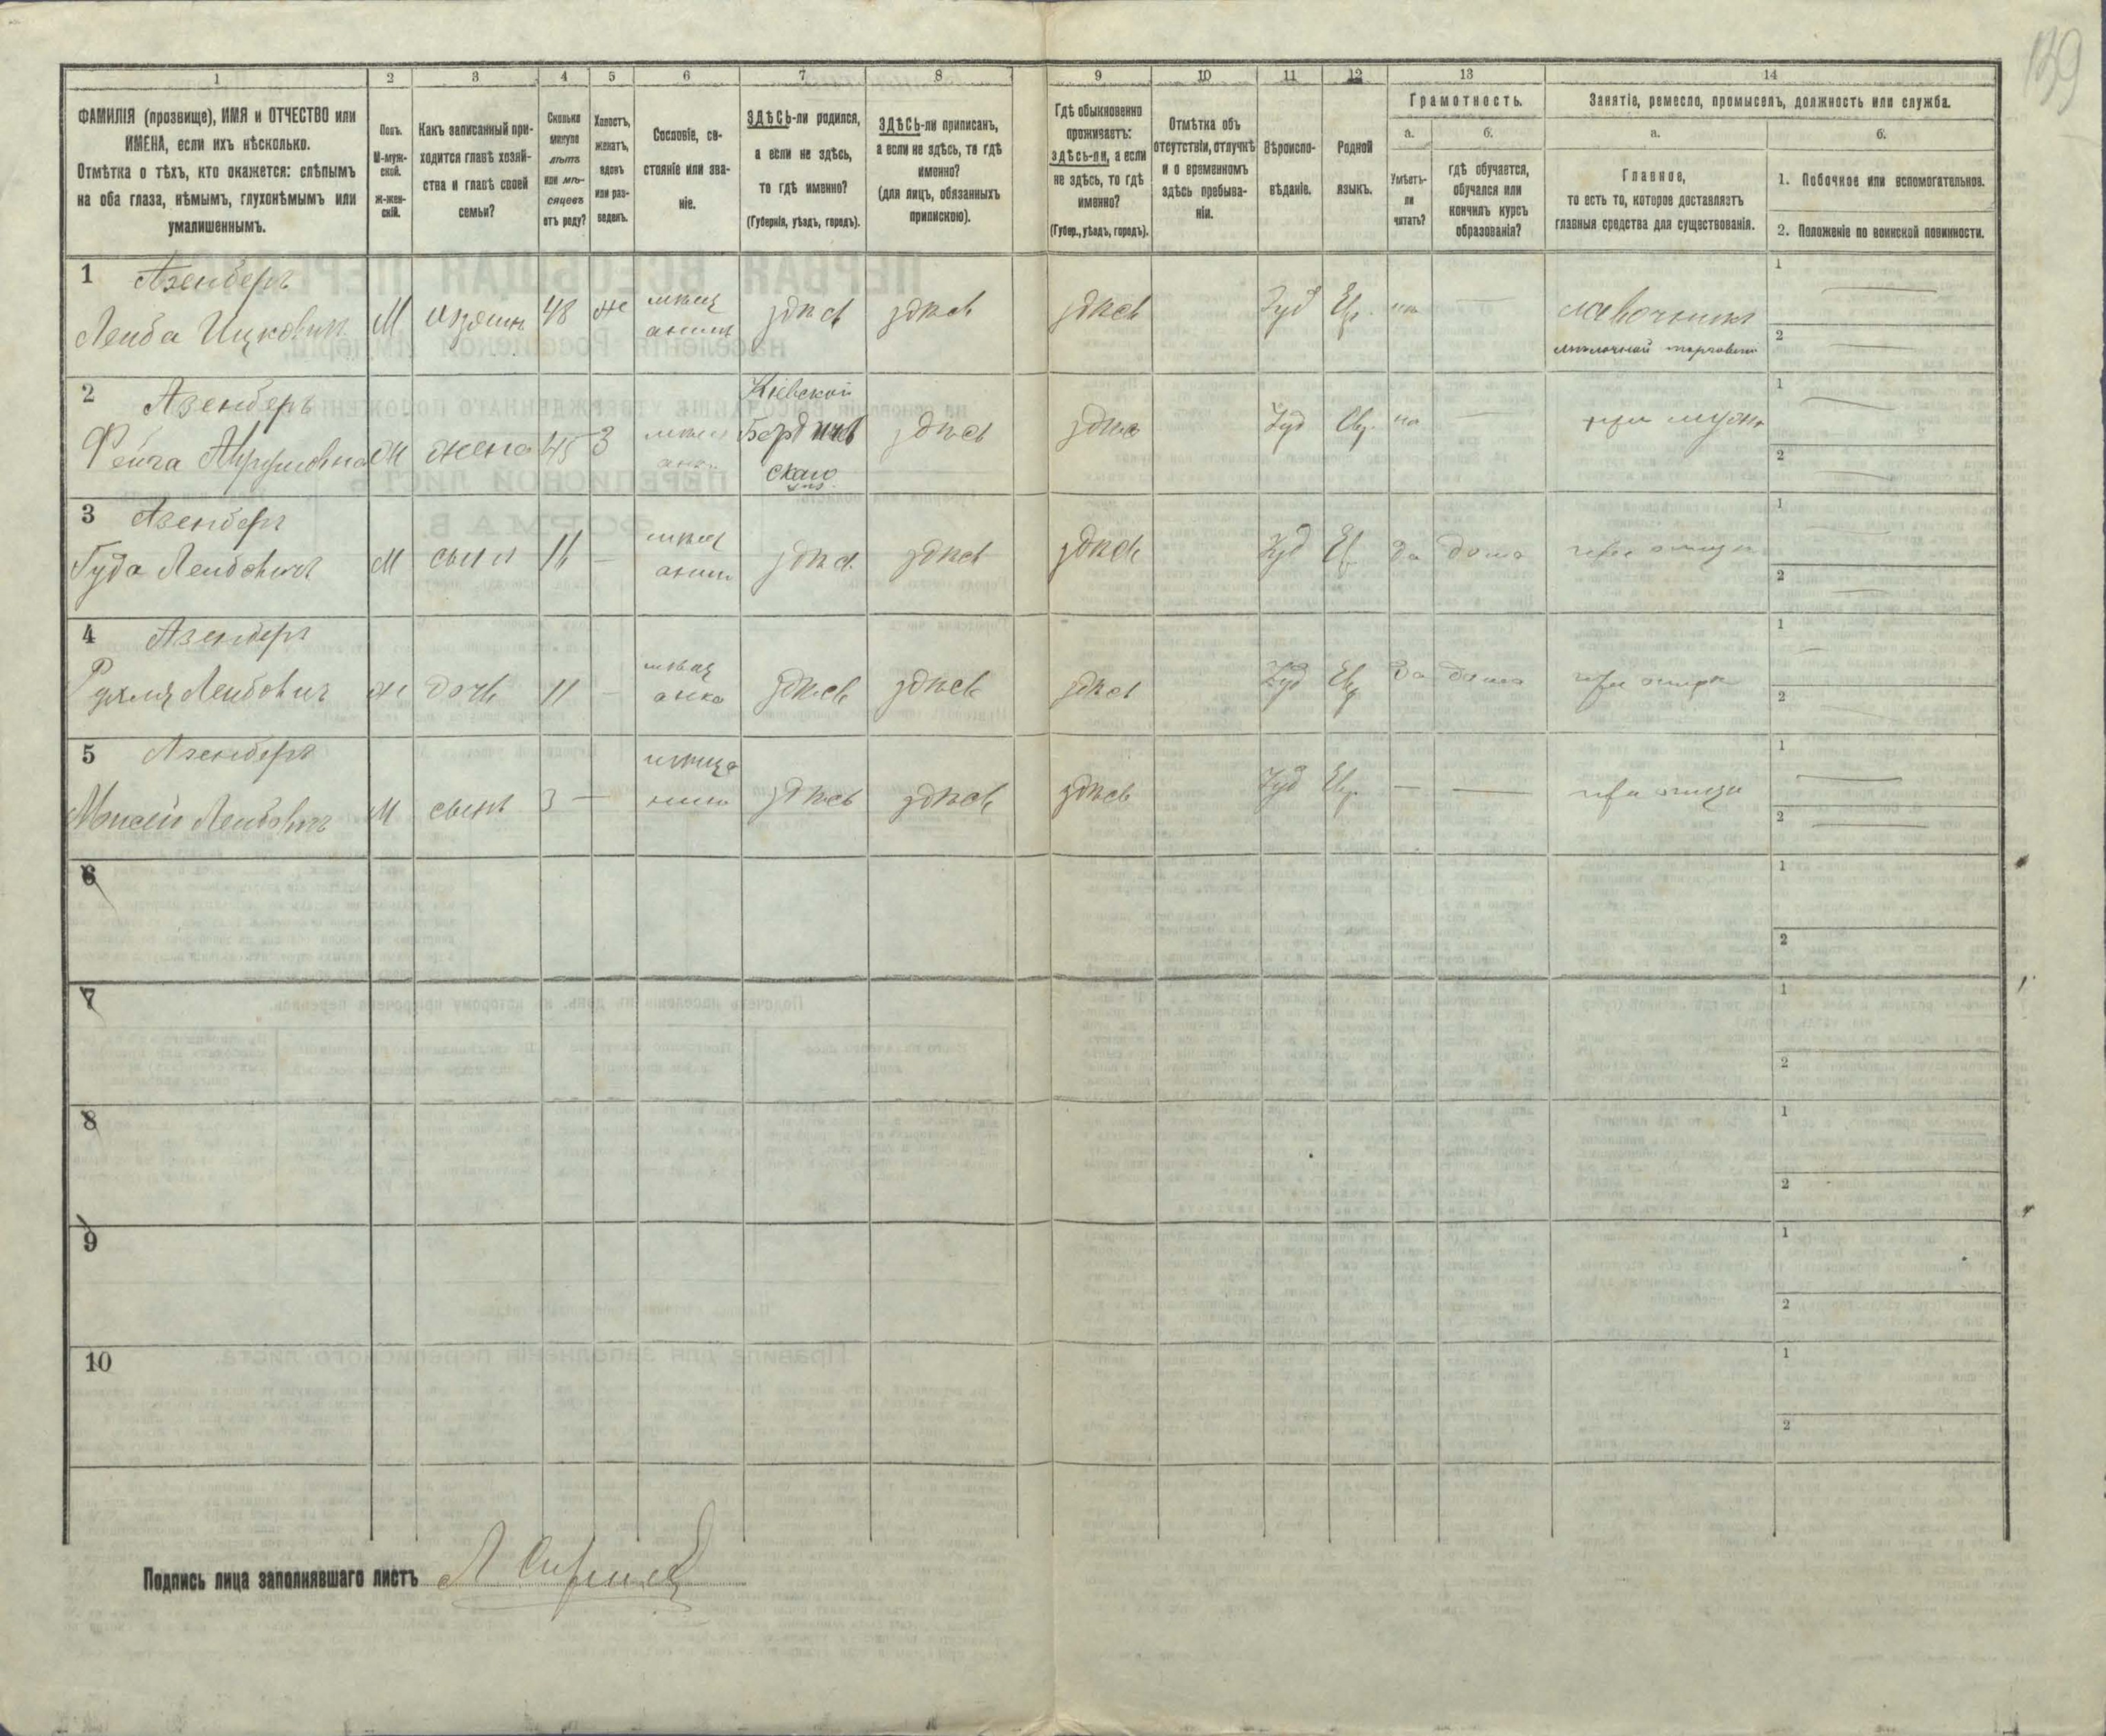 139
1 2 3 4 5 6 7 8 9 10 11 12 13 14
ФАМИЛІЯ (прозвище), ИМЯ и ОТЧЕСТВО или
ИМЕНА, если ихъ нѣсколько.
Отмѣтка о тѣхъ, кто окажется: слѣпымъ
на оба глаза, нѣмымъ, глухонѣмымъ или
умалишеннымъ.
Полъ.
М-муж-
ской.
Ж-жен-
скій.
Какъ записанный при-
ходится главѣ хозяй-
ства и главѣ своей
семьи?
Сколько
минуло
лѣтъ
или мѣ-
сяцевъ
отъ роду?
Холостъ,
женатъ,
вдовъ
или раз-
веденъ.
Сословіе, со-
стояніе или зва-
ніе.
ЗДѢСЬ-ли родился,
а если не здѣсь,
то гдѣ именно?
(Губернія, уѣздъ, городъ).
ЗДѢСЬ-ли приписанъ,
а если не здѣсь, то гдѣ
именно?
(для лицъ, обязанныхъ
припискою).
Гдѣ обыкновенно
проживаетъ:
здѣсь-ли, а если
не здѣсь, то гдѣ
именно?
(Губер., уѣздъ, городъ).
Отмѣтка объ
отсутствіи, отлучкѣ
и о временномъ
здѣсь пребыва-
ніи.
Вѣроиспо-
вѣданіе.
Родной
языкъ.
Грамотность.
а.
Умѣетъ-
ли
читать?
б.
гдѣ обучается,
обучался или
кончилъ курсъ
образованія?
Занятіе, ремесло, промыселъ, должность или служба.
а.
Главное,
то есть то, которое доставляетъ
главныя средства для существованія.
б.
1. Побочное или вспомогательное.
2. Положеніе по воинской повинности.
1 Азенберъ
Лейба Ицковичъ М хозяинъ 48 же мѣщ
анинъ здѣсь здѣсь здѣсь Іуд Евр. нѣ — лавочникъ
мѣлочной торговли
1 —
2 —
2 Азенберъ
Фейга жена 45 З мѣщ
анк Кіевской
Бердичев
скаго здѣсь здѣсь Іуд Евр. нѣ — при мужѣ
1 —
2 —
3 Азенберъ
Гуда Лейбовичъ М сынъ 16 — мѣщ
анинъ здѣсь здѣсь здѣсь Іуд Евр да дома при отцѣ
1 —
2 —
4 Азенберъ
Рухля Лейбович ж дочь 11 — мѣщ
анка здѣсь здѣсь здѣсь Іуд Евр да дома при отцѣ
1 —
2 —
5 Азенберъ
Мошей Лейбовичъ М сынъ 3 — мѣща
нинъ здѣсь здѣсь здѣсь Іуд Евр. — — при отцѣ
1 —
2 —
6
1
2
7
1
2
8
1
2
9
1
2
10
1
2
Подпись лица заполнявшаго листъ